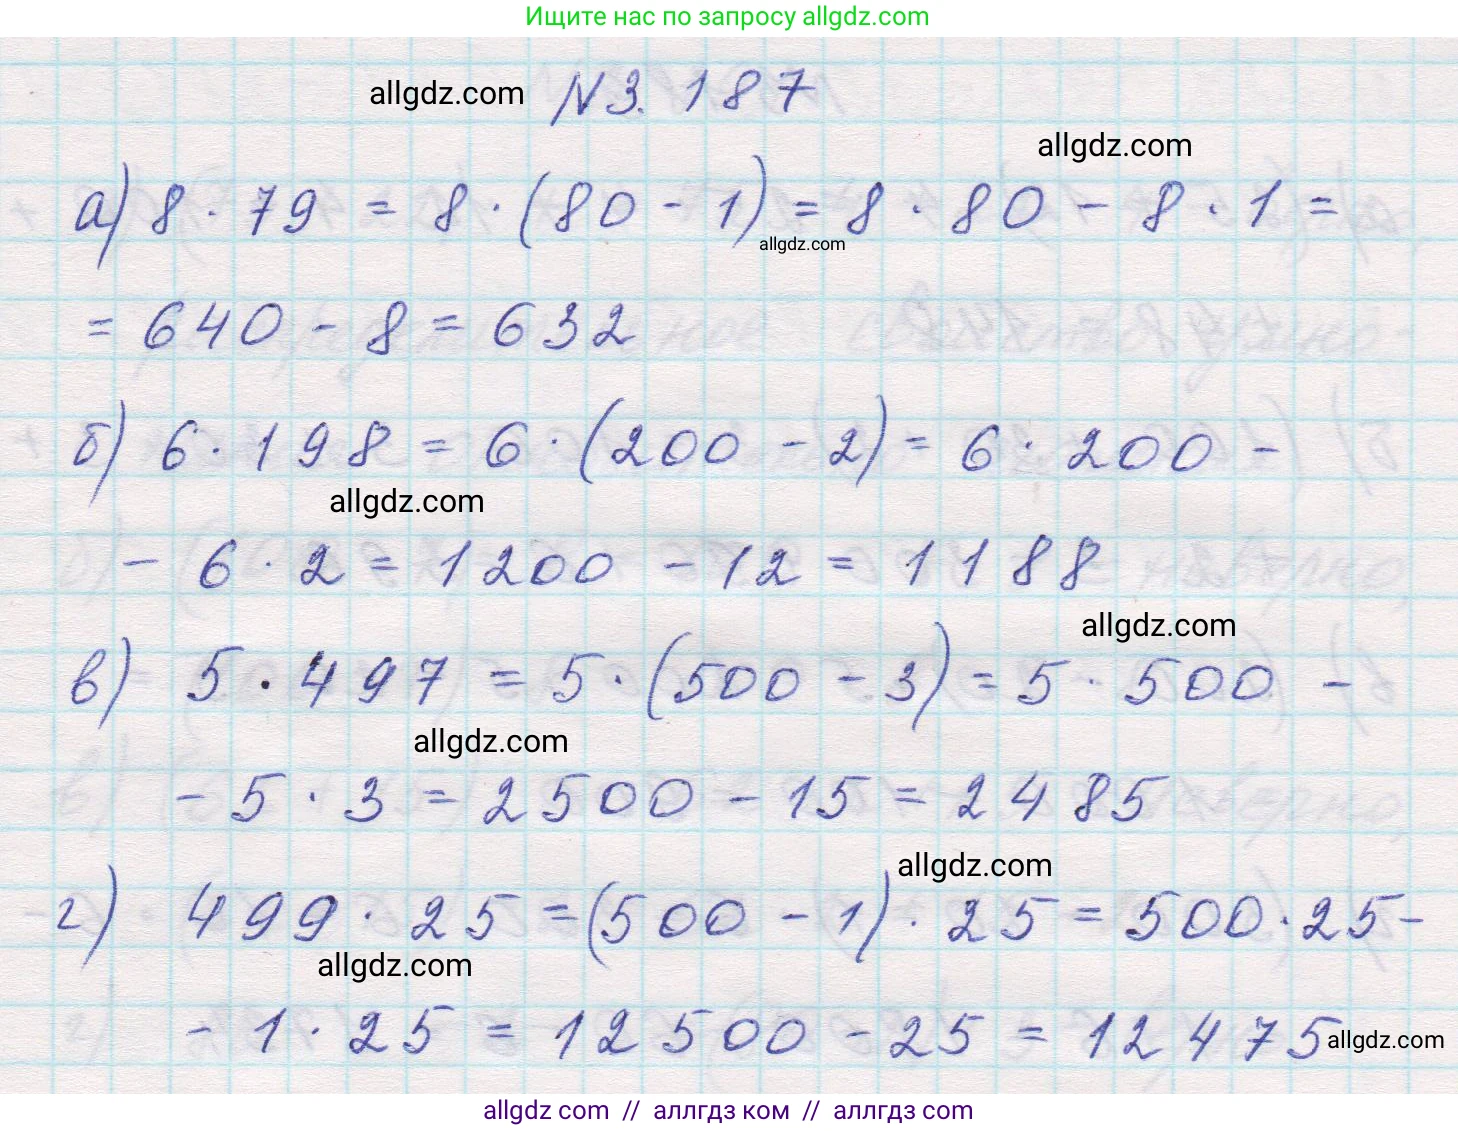 Ищите нас по запросу allgdz.com
allgdz.com N 3.187
allgdz.com
а) 8 · 79 = 8 · (80 - 1) = 8 · 80 - 8 · 1 =
allgdz.com
= 640 - 8 = 632
б) 6 · 198 = 6 · (200 - 2) = 6 · 200 -
allgdz.com
- 6 · 2 = 1200 - 12 = 1188
allgdz.com
в) 5 · 497 = 5 · (500 - 3) = 5 · 500 -
allgdz.com
- 5 · 3 = 2500 - 15 = 2485
allgdz.com
г) 499 · 25 = (500 - 1) · 25 = 500 · 25 -
allgdz.com
- 1 · 25 = 12500 - 25 = 12475 allgdz.com
allgdz com // аллгдз ком // аллгдз com